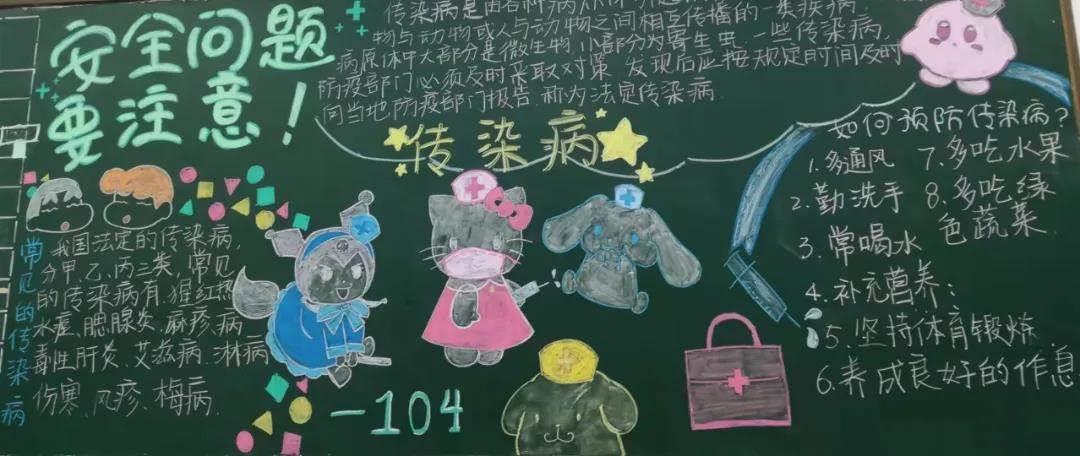 安全问题
要注意！
传染病是由各种病
物与动物或人与动物之间相互传播的一类疾病.
病原体中大部分是微生物,小部分为寄生虫.一些传染病,
防疫部门必须及时采取对策 发现后应按规定时间及时
向当地防疫部门报告.称为法定传染病
传染病
常见的传染病
我国法定的传染病,
分甲、乙、丙三类,常见
的传染病有.猩红热
水痘、腮腺炎、麻疹、病
毒性肝炎、艾滋病、淋病
伤寒、风疹、梅病.
一104
如何预防传染病?
1.多通风
2.勤洗手
3.常喝水
4.补充营养;
5.坚持体育锻炼
6.养成良好的作息
7.多吃水果
8.多吃绿
色蔬菜